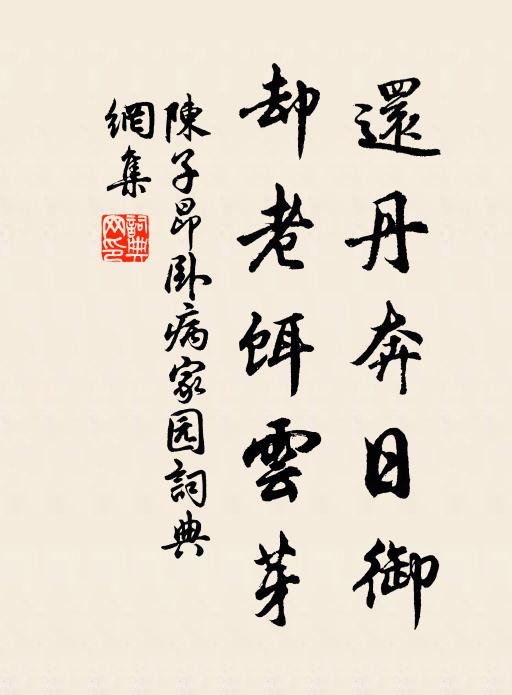 還丹奔日御
却老餌雲芽
陳子昂卧病家园詞典
網集
詞典
网印